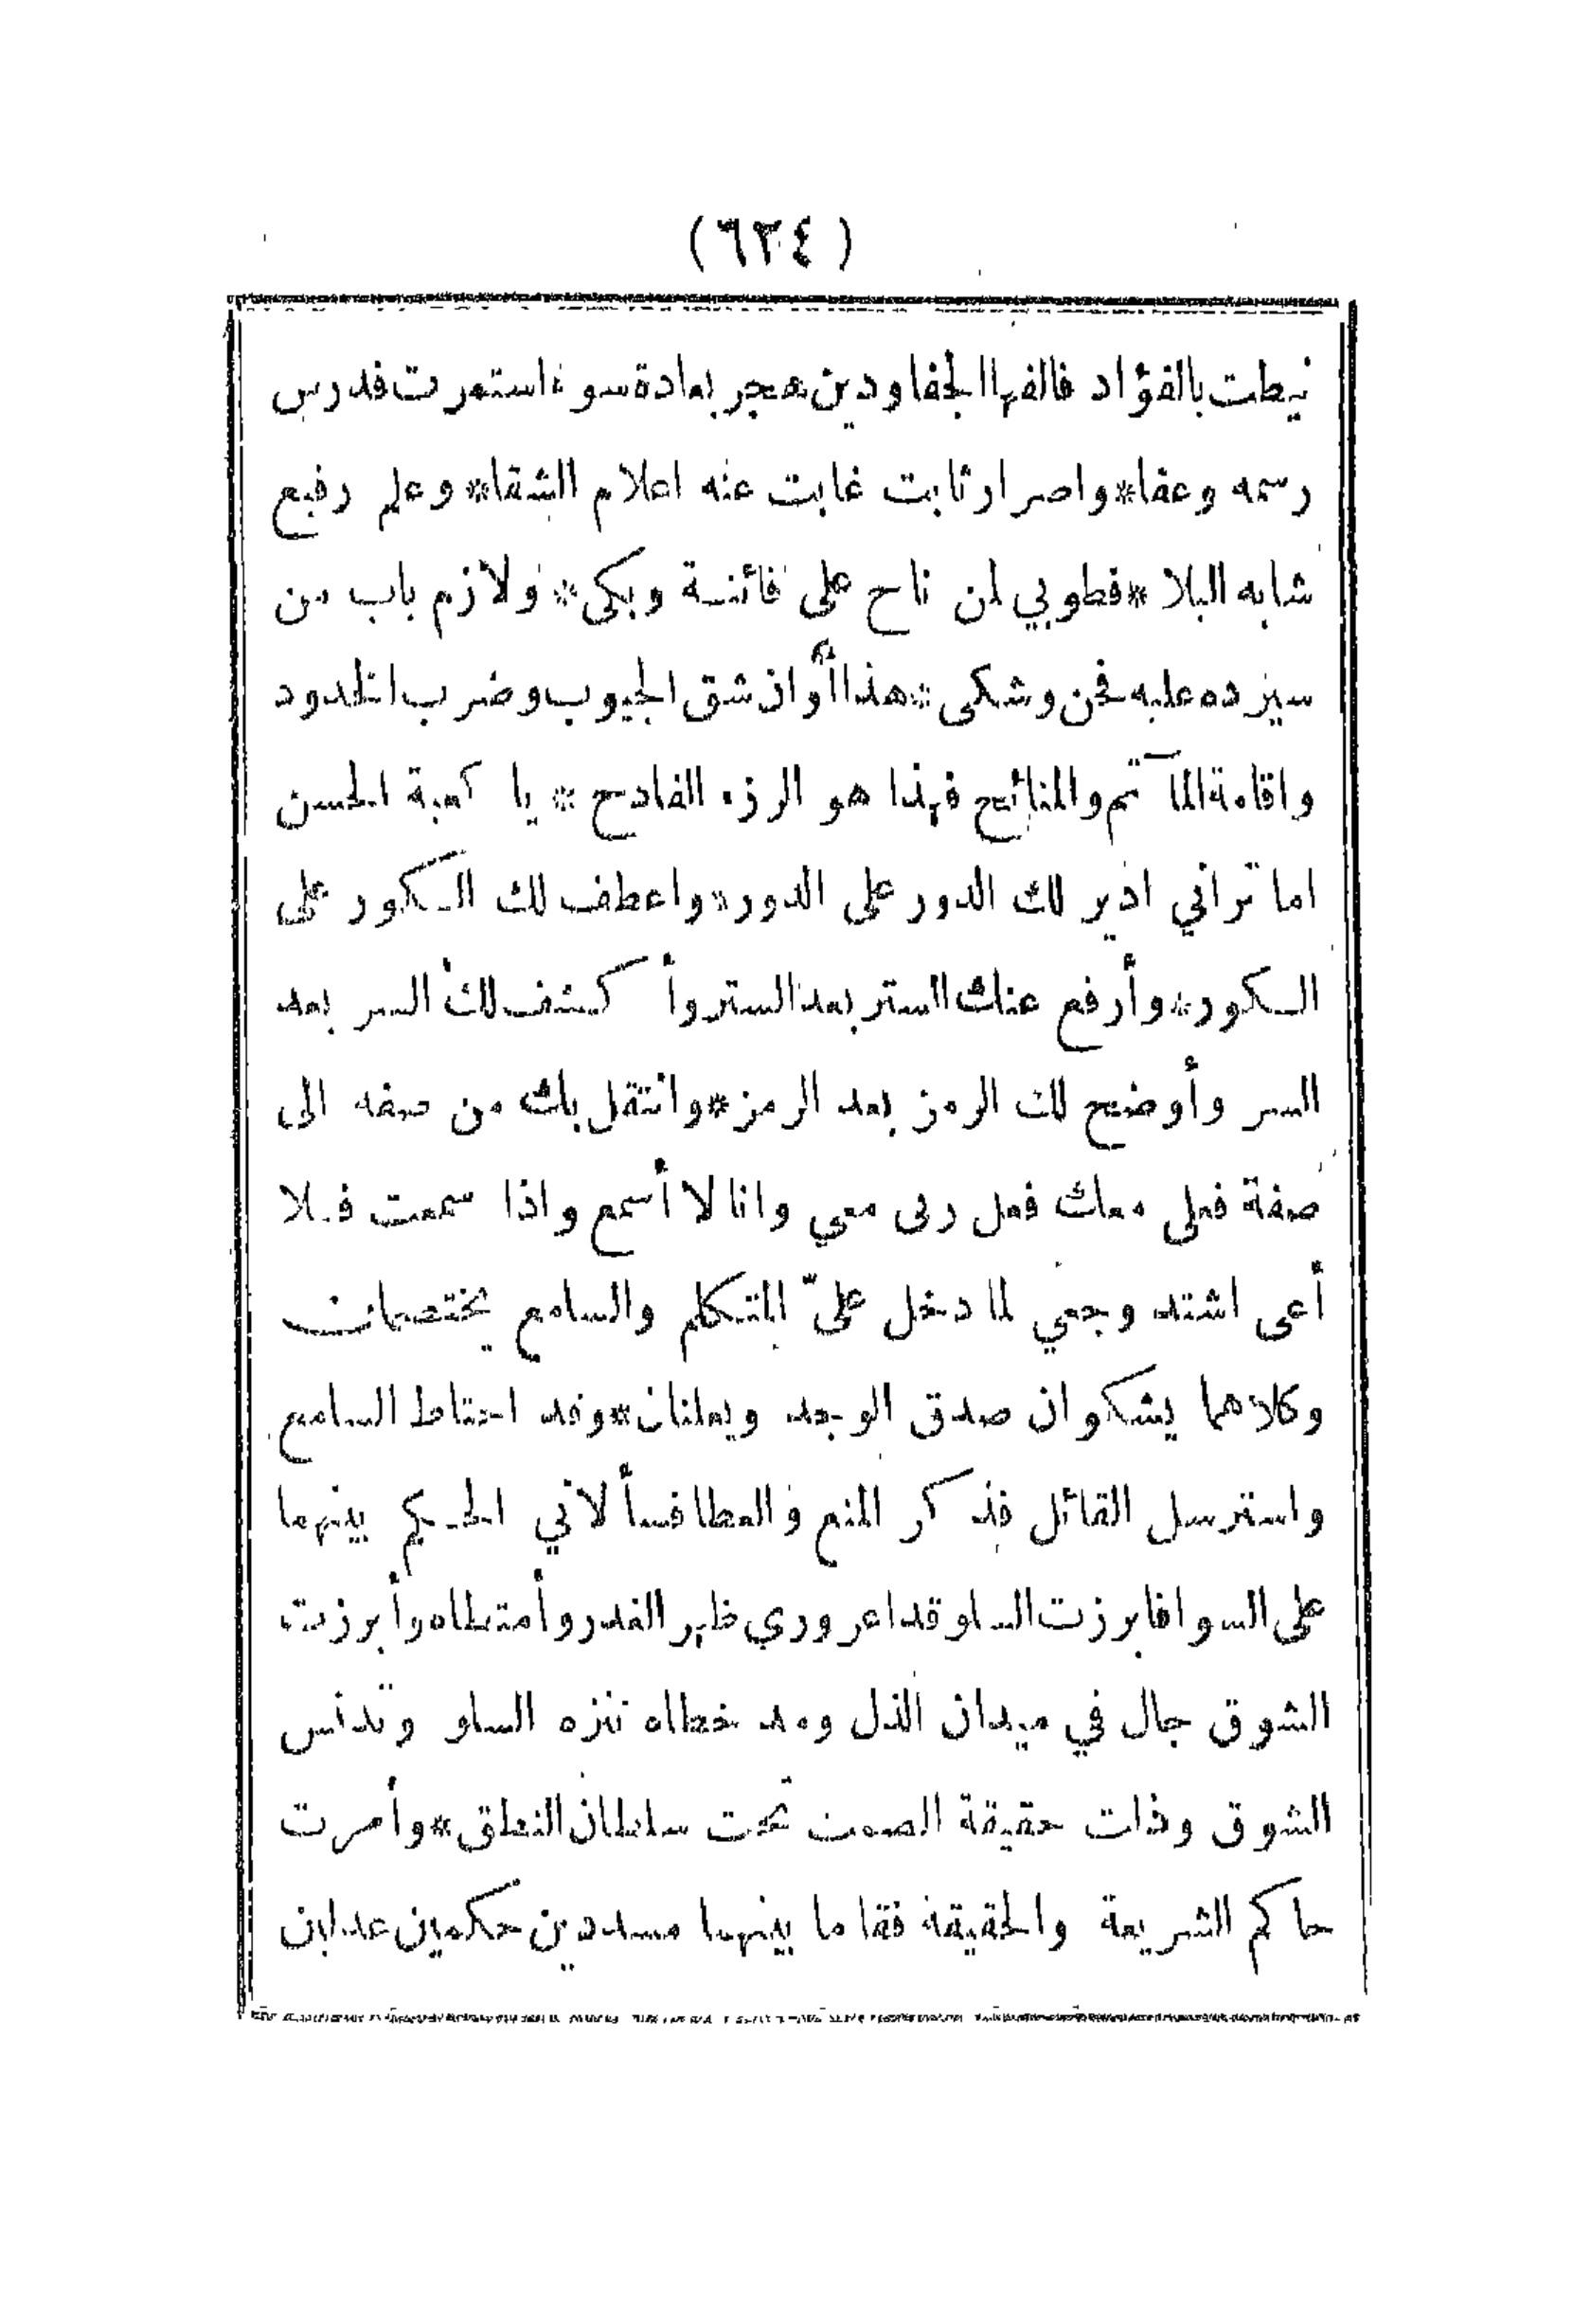 (٦٢٤)
نيطت بالفؤاد فالفها الجفاودين هجر بعادة سوء استمرت فدرس
رسمه وعفا*واصرار ثابت غابت عنه اعلام الشقا*وعلم رفيع
شابه البلا*فطوبي لمن ناح على فائنة وبكى*ولازم باب من
سيزده عليه فحن وشكى*هذا أوان شق الجيوب وضرب الخدود
واقامة المآتم والمنائح فهذا هو الرزء الفادح*يا كعبة الحسن
اما تراني ادير لك الدور على الدور*واعطف لك الكور على
الكور*وأرفع عنك الستر بعد الستر وأكشف لك السر بعد
السر وأوضح لك الرمز بعد الرمز*وانتقل بك من صفه الى
صفة فعلى معك فعل ربى معي وانا لا أسمع واذا سمعت فلا
أعى اشتد وجعي لما دخل علىّ المتكلم والسامع يختصمان
وكلاهما يشكوان صدق الوجد ويعلنان*وقد احتاط السامع
واسترسل القائل فذكر المنع والعطا فسألاني الحكيم بينهما
على السوا فابرزت السلو قد اعروري ظهر الغدر وأمتطاه وأبرزت
الشوق جال في ميدان الذل ومد خطاه تنزه السلو وتدنس
الشوق وذات حقيقة الصمت تحت سلطان النطق*وأمرت
حاكم الشريعة والحقيقة فقاما بينهما مسددين حكمين عدلين